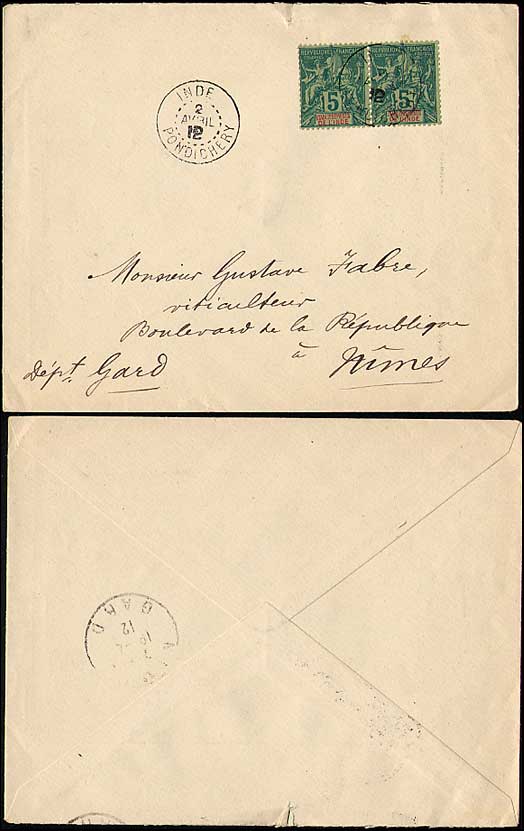 REPUBLIQUE FRANÇAISE REPUBLIQUE FRANÇAISE
5 5
DE L'INDE DE L'INDE
12
INDE
2
AVRIL
12
PONDICHERY
Monsieur Gustave Fabre,
viticulteur
Boulevard de la République
à Nîmes
Dépt. Gard
GARD
12